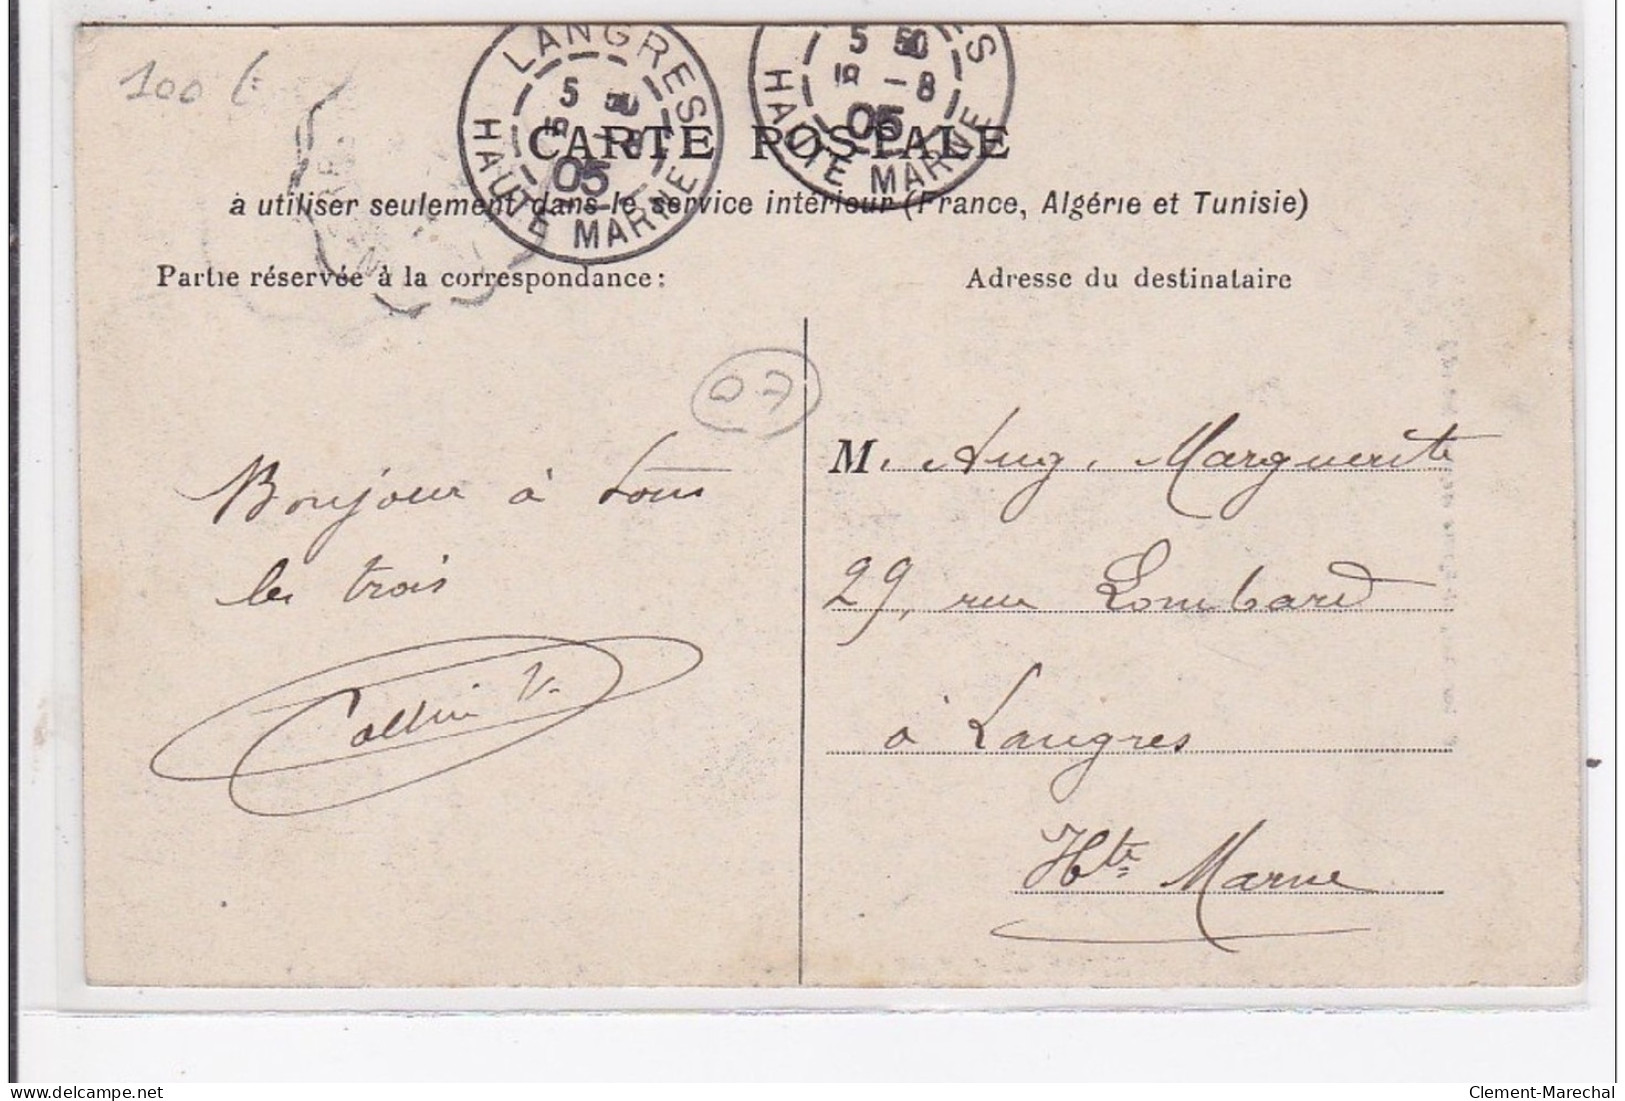 100 €
LANGRES
5 50
18 -8
05
HAUTE MARNE
5 50
18 -8
05
HAUTE MARNE
CARTE POSTALE
à utiliser seulement dans le service intérieur (France, Algérie et Tunisie)
Partie réservée à la correspondance :
Adresse du destinataire
07
Bonjour à tous
les trois
Collin V.
M. Aug. Marguerite
29, rue Lombard
à Langres
Hte Marne
Clement-Marechal